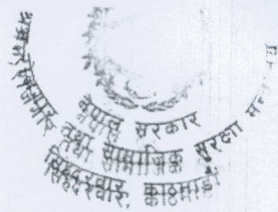 नेपाल सरकार
श्रम, रोजगार तथा सामाजिक सुरक्षा मन्त्रालय
सिंहदरबार, काठमाडौं